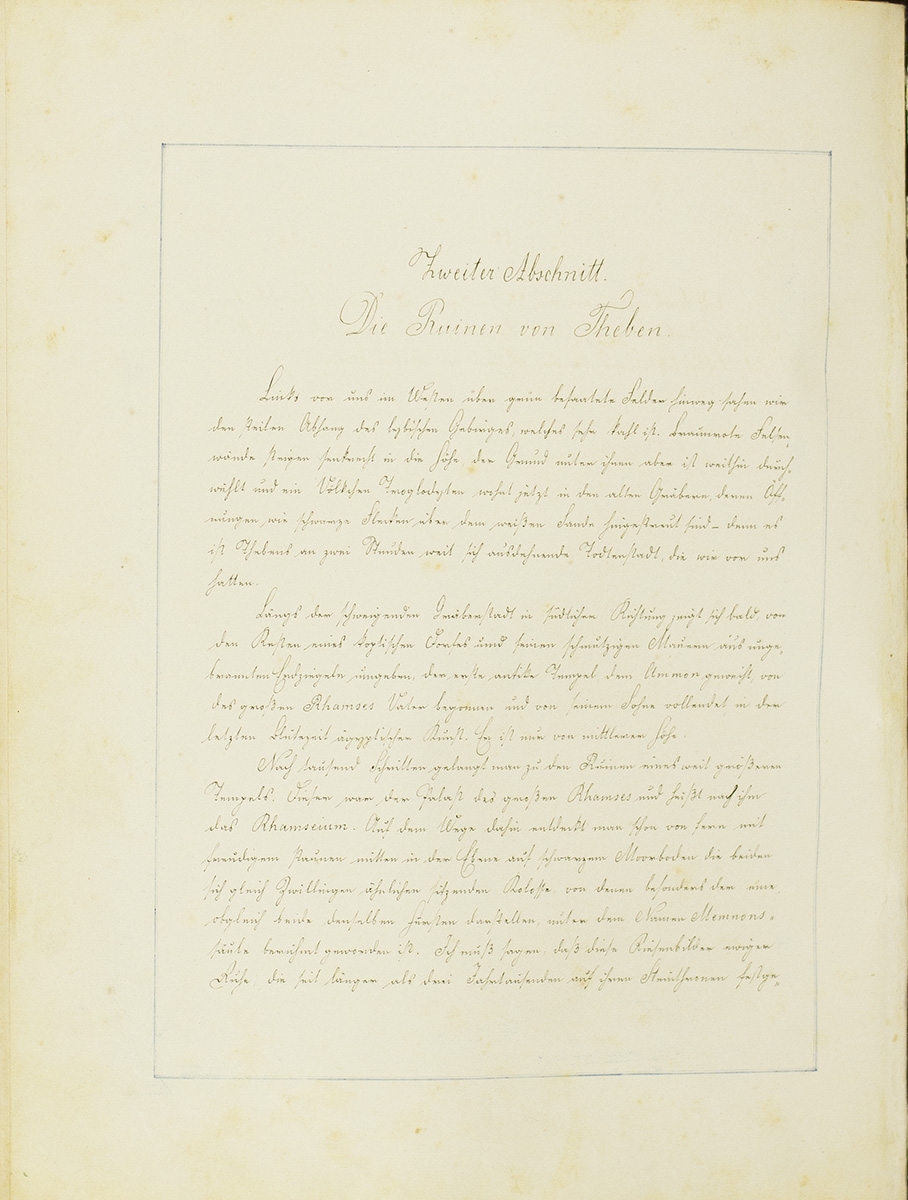 Zweiter Abschnitt.
Die Ruinen von Theben.
Links vor uns im Westen über grün besaatete Felder hinweg sahen wir
den steilen Abhang des lybischen Gebirges, welches sehr kahl ist. Braunrote Felsen-
wände steigen senkrecht in die Höhe, der Grund unter ihnen aber ist weithin durch-
wühlt und ein Völkchen Troglodyten wohnt jetzt in den alten Gräbern, deren Öff-
nungen wie schwarze Flecken über dem weißen Sande hingestreut sind – denn es
ist Thebens an zwei Stunden weit sich ausdehnende Todtenstadt, die wir vor uns
hatten.
Längs der schweigenden Gräberstadt in südlicher Richtung zeigt sich bald, von
den Resten eines koptischen Dorfes und seinen schmutzigen Mauern aus unge-
brannten Erdziegeln umgeben, der erste antike Tempel dem Ammon geweiht, von
des großen Rhamses Vater begonnen und von seinem Sohne vollendet in der
letzten Blütezeit ägyptischer Kunst. Er ist nur von mittlerer Höhe.
Nach tausend Schritten gelangt man zu den Ruinen eines weit größeren
Tempels. Dieser war der Palast des großen Rhamses und heißt nach ihm
das Rhamseium. Auf dem Wege dahin entdeckt man schon von fern mit
freudigem Staunen mitten in der Ebene auf schwarzem Moorboden die beiden
sich gleich Zwillingen ähnlichen sitzenden Kolosse, von denen besonders der eine,
obgleich beide denselben Fürsten darstellen, unter dem Namen Memnons-
säule berühmt geworden ist. Ich muß sagen, daß diese Riesenbilder ewiger
Ruhe, die seit länger als drei Jahrtausenden auf ihren Steinthronen festge-